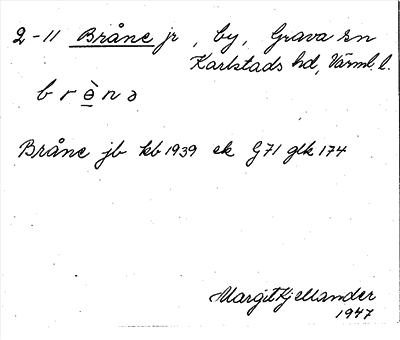 2-11 Bråne jr, by, Grava sn
Karlstads hd, Värml. l.
brènə
Bråne jb kb 1939 ek G71 glk 174
Margit Kjellander
1947